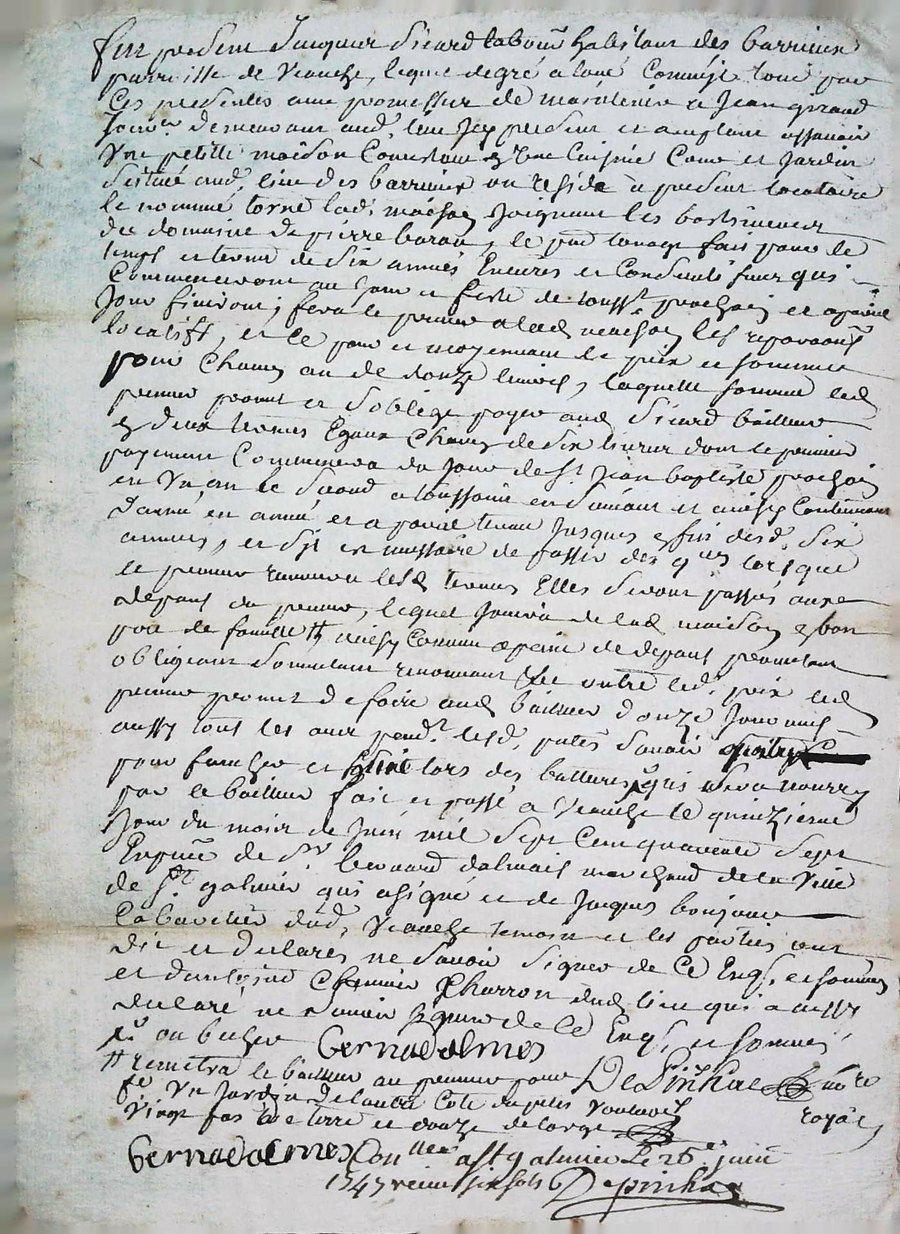 fut present Jacques Sicard labour habitant des barrieux
parroisse de Veauche, lequel de gré a loué comme il loue par
Ces presentes avec promesse de maintenir a Jean giraud
Jourer demeurant aud. lieu Icy present et acceptant assavoir
Une petitte maison Consistant en Une Cuisine Cave et Jardin
scitué aud. lieu des barrieux ou reside a present locataire
le nommé torne lad. maison Joignant les bastiments
du domaine de pierre barou, le pnt louage fait pour le
temps et terme de six années Entieres et Consecutives qui
Commenceront au Jour et feste de touss.t prochain et a pareil
Jour finiront; fera le preneur a lad. maison les reparaons
locatifs, et Ce pour et moyenant le prix et somme
pour Chacun an de douze livres, laquelle somme led.
preneur promet et s'oblige payer aud. Sicard bailleur
en deux termes Egaux Chacun de six livres dont le premier
payement Commencera du Jour de St Jean baptiste prochain
en Un an le second a toussaint en suivant et ainsy Continuant
d'année en année et a pareil terme Jusques en fin desd. six
années, et s'il est necessaire de passer des qces lorsque
le preneur remettra lesd. termes Elles seront passés aux
depans du preneur, lequel Jouira de lad. maison en bon
pere de famille # ainsy Comme a peine de depans promettant
obligeant soumettant renonceant &c outre led. prix led.
preneur promet de faire aud. bailleur d'onze Journées
aussy tous les ans pend.t lesd. six savoir
pour faucher et lors des battures qui sera nourry
par le bailleur fait et passé a Veauche le quinzieme
Jour du mois de Juin mil sept Cent quarante sept
En presce de Sr bernard dalmais marchand de la Ville
de St galmier qui a signé et de Jacques bonjour
Cabaretier dud. Veauche temoins et les parties ont
dit et declaré ne savoir signer de Ce Enqs. et sommés
et d'antoine Charron dud. lieu qui a aussy
declaré ne savoir signer de Ce Enqs. et sommé
bernadalmes
# remettra le bailleur au preneur pour DePinhac nore
Un Jardin de l'autre Coté royal
Vingt pas de terre et douze de large
bernadalmes Conllé a St galmier le 26e juin
1747 reçu six sols Depinhac